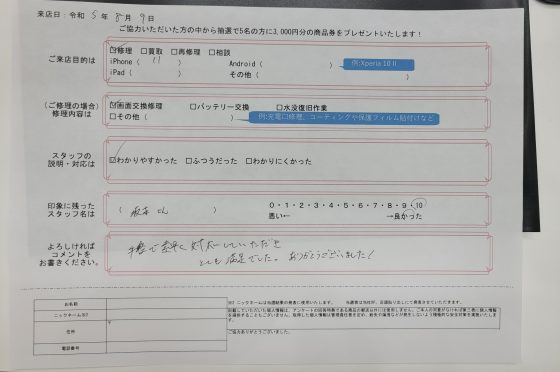 来店日：令和 5 年 8 月 9 日
ご協力いただいた方の中から抽選で5名の方に3,000円分の商品券をプレゼントいたします！
ご来店目的は
☑修理 □買取 □再修理 □相談
iPhone（ 11 ） Android（ ） 例:Xperia 10 II
iPad（ ） その他（ ）
（ご修理の場合）
修理内容は
☑画面交換修理 □バッテリー交換 □水没復旧作業
□その他（ ） 例:充電口修理、コーティングや保護フィルム貼付けなど
スタッフの
説明・対応は
☑わかりやすかった □ふつうだった □わかりにくかった
印象に残った
スタッフ名は
（ 坂本さん ）
0・1・2・3・4・5・6・7・8・9・10
悪い← →良かった
よろしければ
コメントを
お書きください。
対応していただき
とても満足でした。ありがとうございました！
お名前
ニックネーム※2
住所
〒
電話番号
※2 ニックネームは当選結果の発表に使用いたします。
ご協力ありがとうございました。